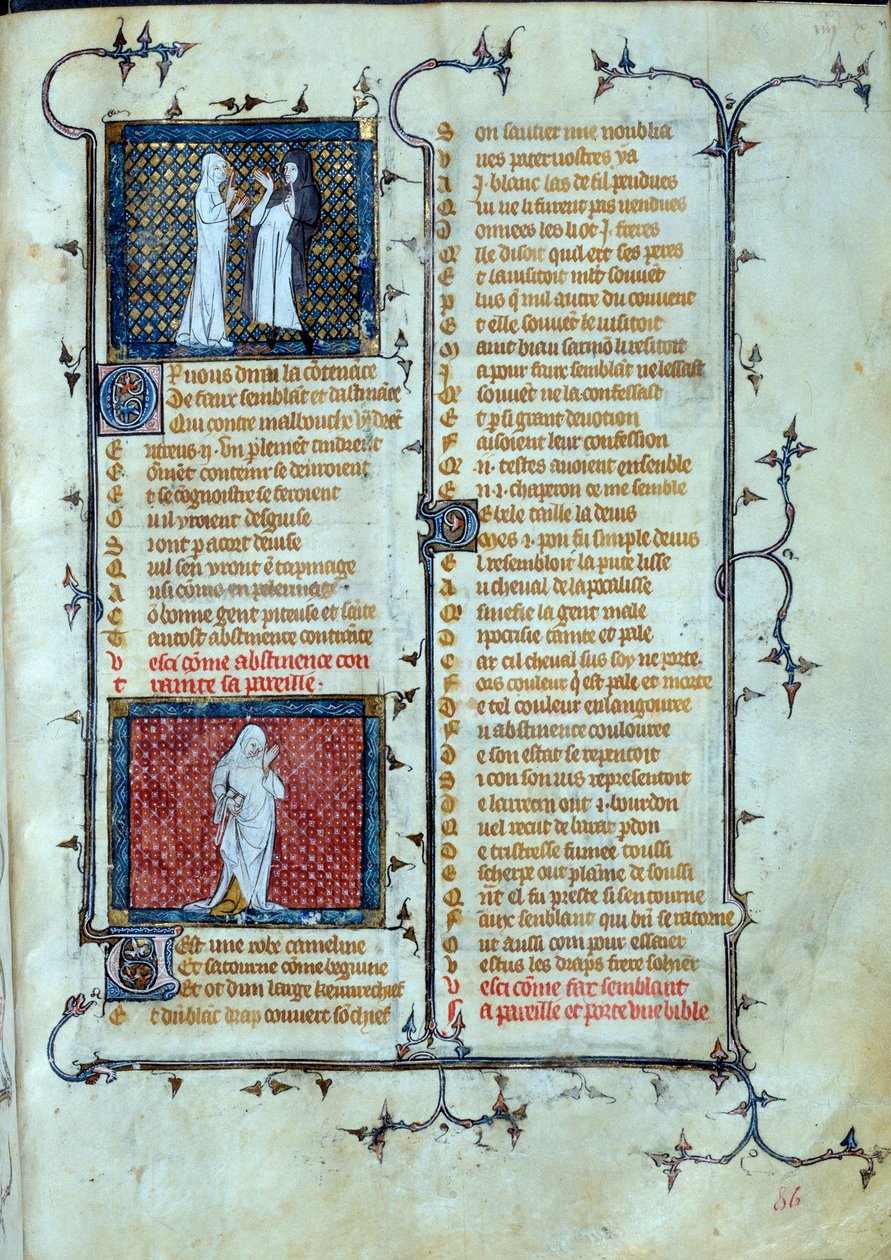 Or vous dirai la cōtenāce
De faux semblāt et dastināce
Qui contre malbouche vīdrēt
E ntreus .ij. vn plemēt tindrent
C ōmēt contenir se deiuoient
E t se cognoistre se feroient
O u il yroient desguise
S i ont p acort deuise
Q uil sen yront ē tapinage
A usi cōme en pelerinage
C ō bonne gent piteuse et sāite
T antost abstinence contrāite
V esci cōme abstinence con
t rainte sa pareille.
Uest une robe cameline
Et satourne cōme beguine
Et ot dun large keuurechief
E t du blāc drap couuert sō chief
S on sautier mie noublia
V nes paternostres ya
A .j. blanc las de fil pendues
Q ui ne li furent pas uendues
D onnees les li ot .j. freres
Q lle disoit quil ert ses peres
E t la uisitoit mlt souuēt
P lus q̄ nul autre du couuent
E t elle souuēt le uisitoit
M aint biau sarmō li resitoit
J a pour faux semblāt ne lessast
Q souuēt ne la confessast
E t p si grant deuotion
F aisoient leur confession
Q .ij. testes auoient ensenble
E n .i. chaperon ce me semble
De bele taille la deuis
Mes .i. pou fu simple de uis
E l resembloit la pute lisse
A u cheual de lapocalisse
Q i sinefie la gent male
D ipocrisie tainte et pale
C ar cil cheual sus soy ne porte
F ors couleur q̄ est pale et morte
D e tel couleur enlangouree
F u abstinence coulouree
D e son estat se repentoit
S i con son uis representoit
D e larrecin ont .i. bourdon
Q uel recut de barat pdon
D e tristresse fumee roussi
E scherpe out plaīne de soussi
Q n̄t el fu preste si sen tourne
F aux senblant qui biī se ratorne
O ut ausi com pour essaier
V estus les draps frere sohier
V esci cōme fax semblant
S a pareille et porte vne bible
86